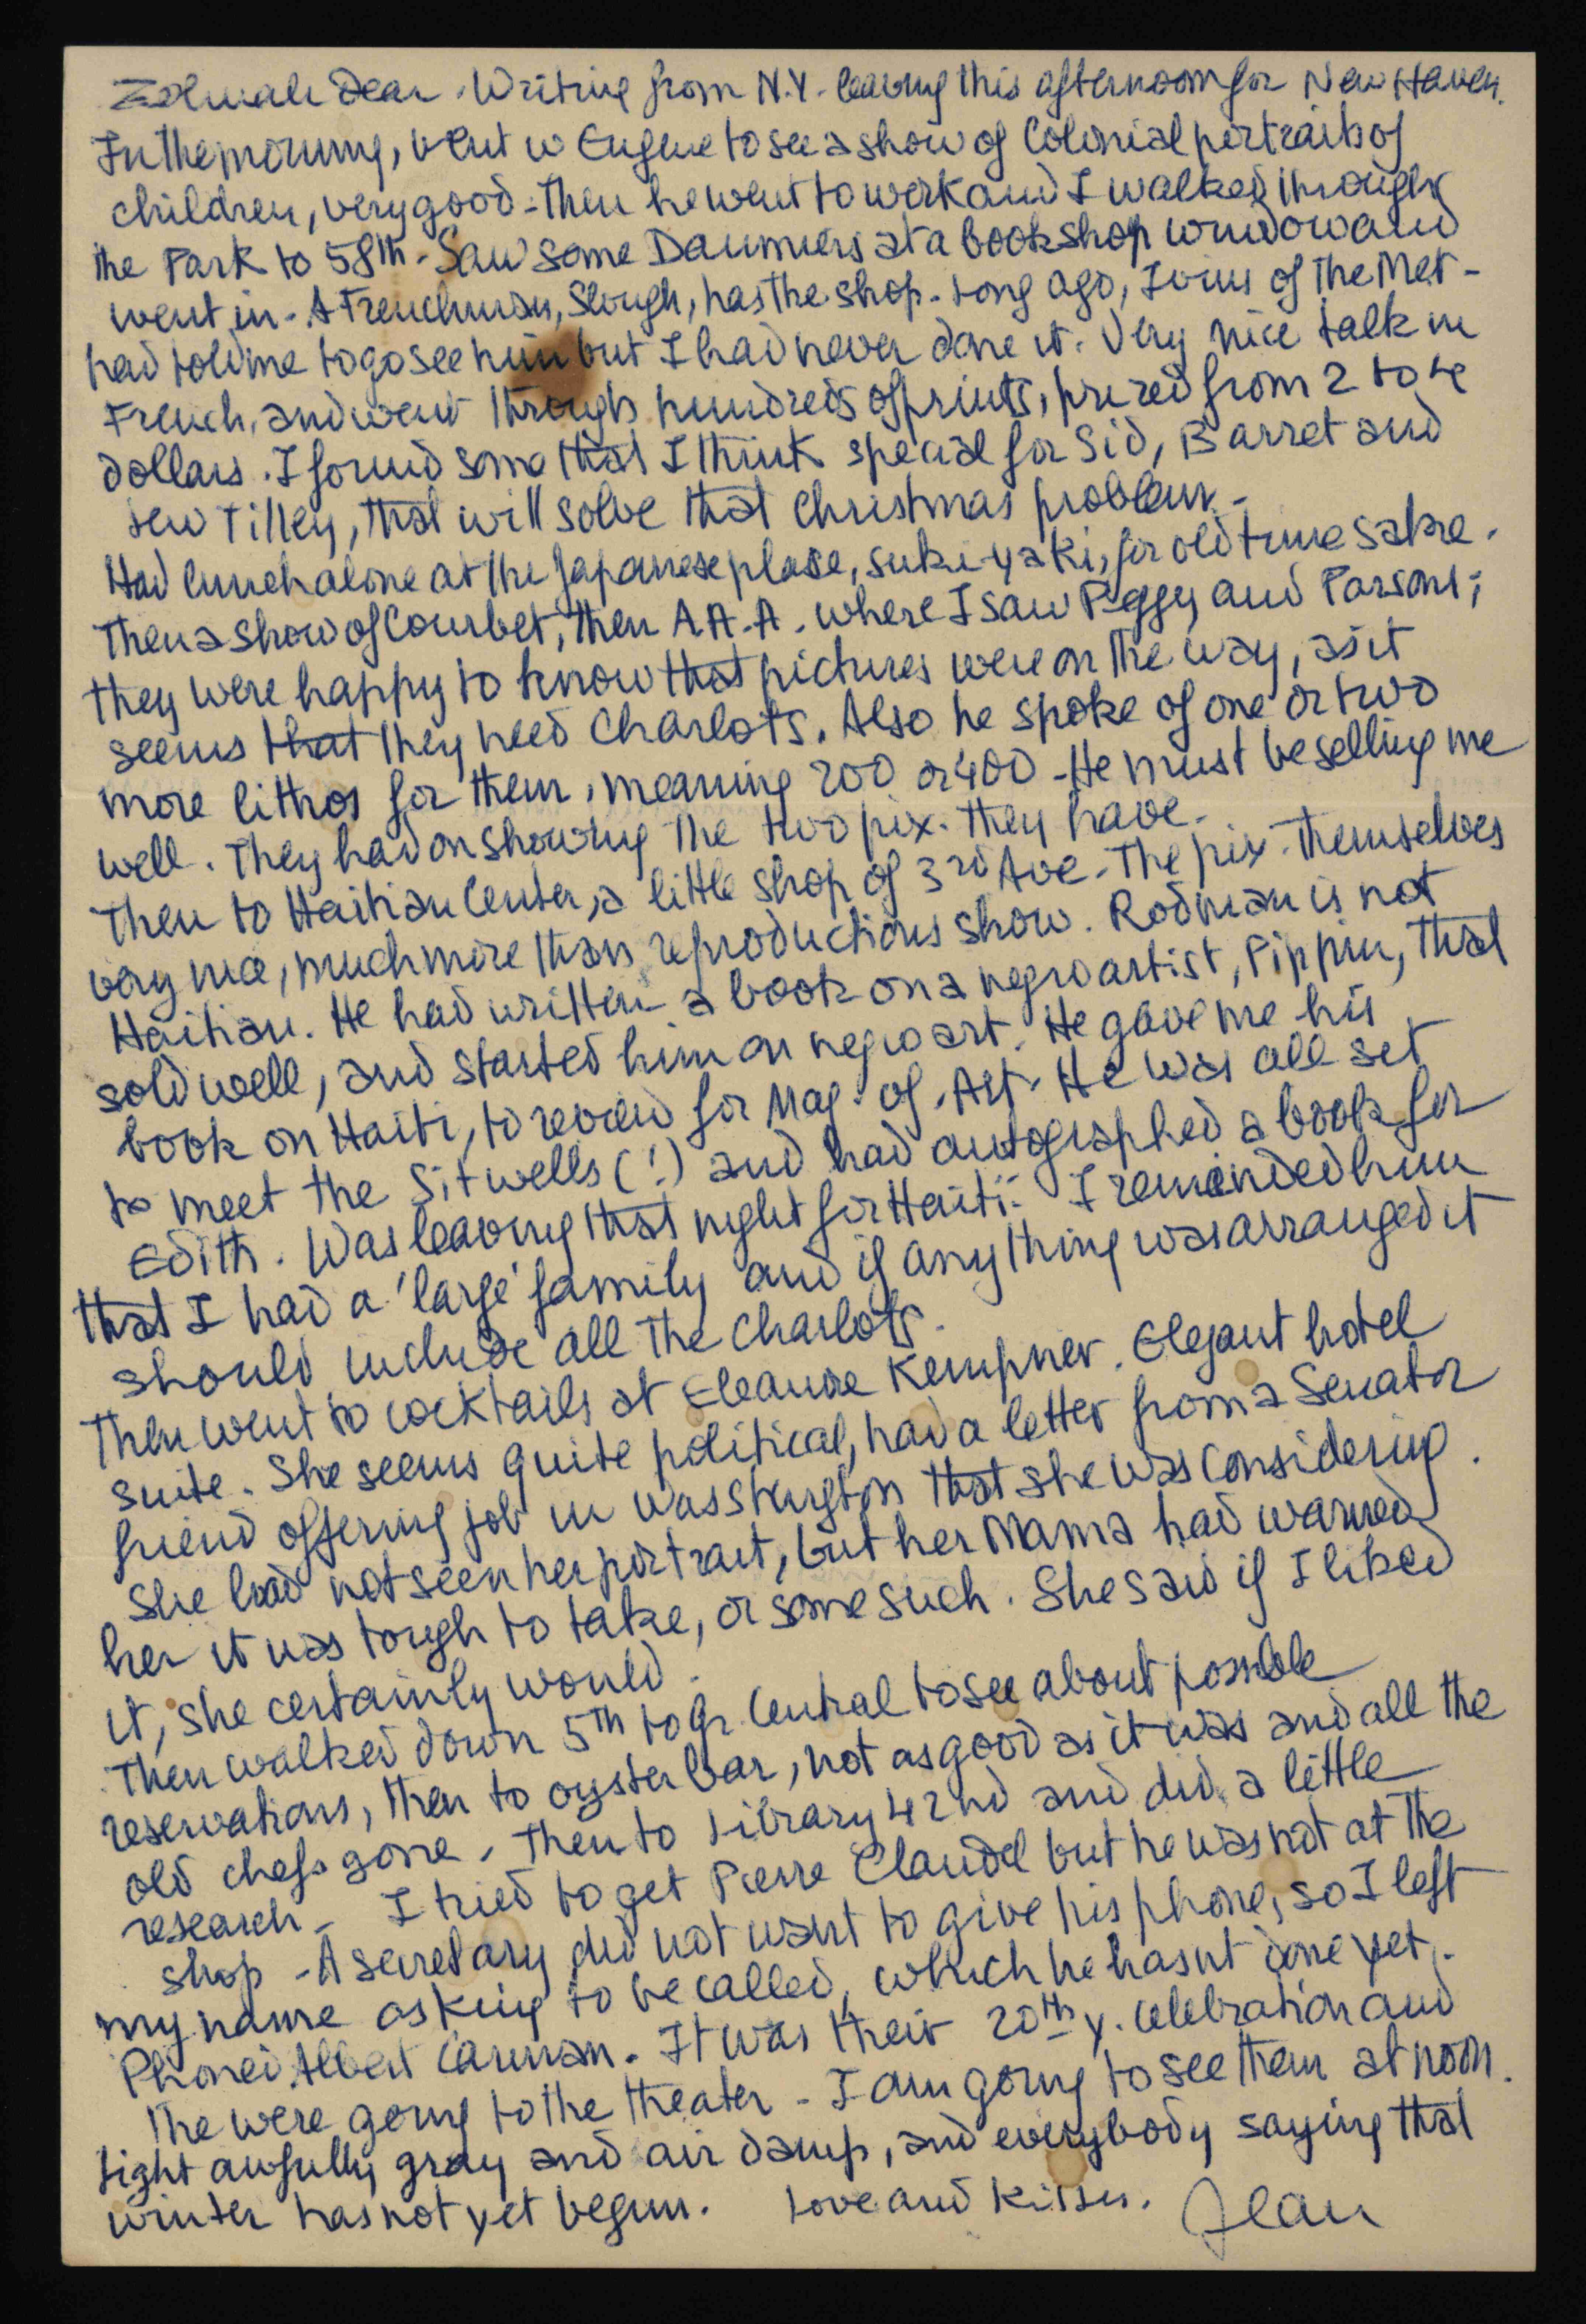 Zohmah Dear. Writing from N.Y. leaving this afternoon for New Haven.
In the morning, went w Eugene to see a show of Colonial portraits of
children, very good. Then he went to work and I walked through
the Park to 58th. Saw some Daumiers at a bookshop window and
went in. A Frenchman, Slough, has the shop. Long ago, Ivins of The Met.
had told me to go see him but I had never done it. Very nice talk in
French, and went through hundreds of prints, prized from 2 to 4
dollars. I found some that I think special for Sid, Barret and
Lew Tilley, that will solve that Christmas problem.
Had lunch alone at the Japanese place, suki-yaki, for old time sake.
Then a show of Courbet, then A.A.A. where I saw Peggy and Parsons;
they were happy to know that pictures were on the way, as it
seems that they need Charlots. Also he spoke of one or two
more lithos for them, meaning 200 or 400 - He must be selling me
well. They had on showing The two pix. they have.
Then to Haitian Center, a little shop of 3rd Ave. The pix. themselves
very nice, much more than reproductions show. Rodman is not
Haitian. He had written a book on a negro artist, Pippin, that
sold well, and started him on negro art. He gave me his
book on Haiti, to review for Mag. of. Art. He was all set
to meet the Sitwells (!) and had autographed a book for
Edith. Was leaving that night for Haiti. I reminded him
that I had a 'large' family and if anything was arranged it
should include all The Charlots.
Then went to cocktails at Eleanore Kempner. Elegant hotel
suite. She seems quite political, had a letter from a Senator
friend offering job in Wasshington that she was considering.
She had not seen her portrait, but her Mama had warned
her it was tough to take, or some such. She said if I liked
it, she certainly would.
Then walked down 5th to Gr. Central to see about possible
reservations, then to oyster bar, not as good as it was and all the
old chefs gone. Then to Library 42nd and did a little
research - I tried to get Pierre Claudel but he was not at the
shop - A secretary did not want to give his phone, so I left
my name asking to be called, which he hasnt done yet.
Phoned Albert Carman. It was their 20th y. celebration and
The were going to the theater - I am going to see them at noon.
Light awfully gray and air damp, and everybody saying that
winter has not yet begun. Love and kisses. Jean